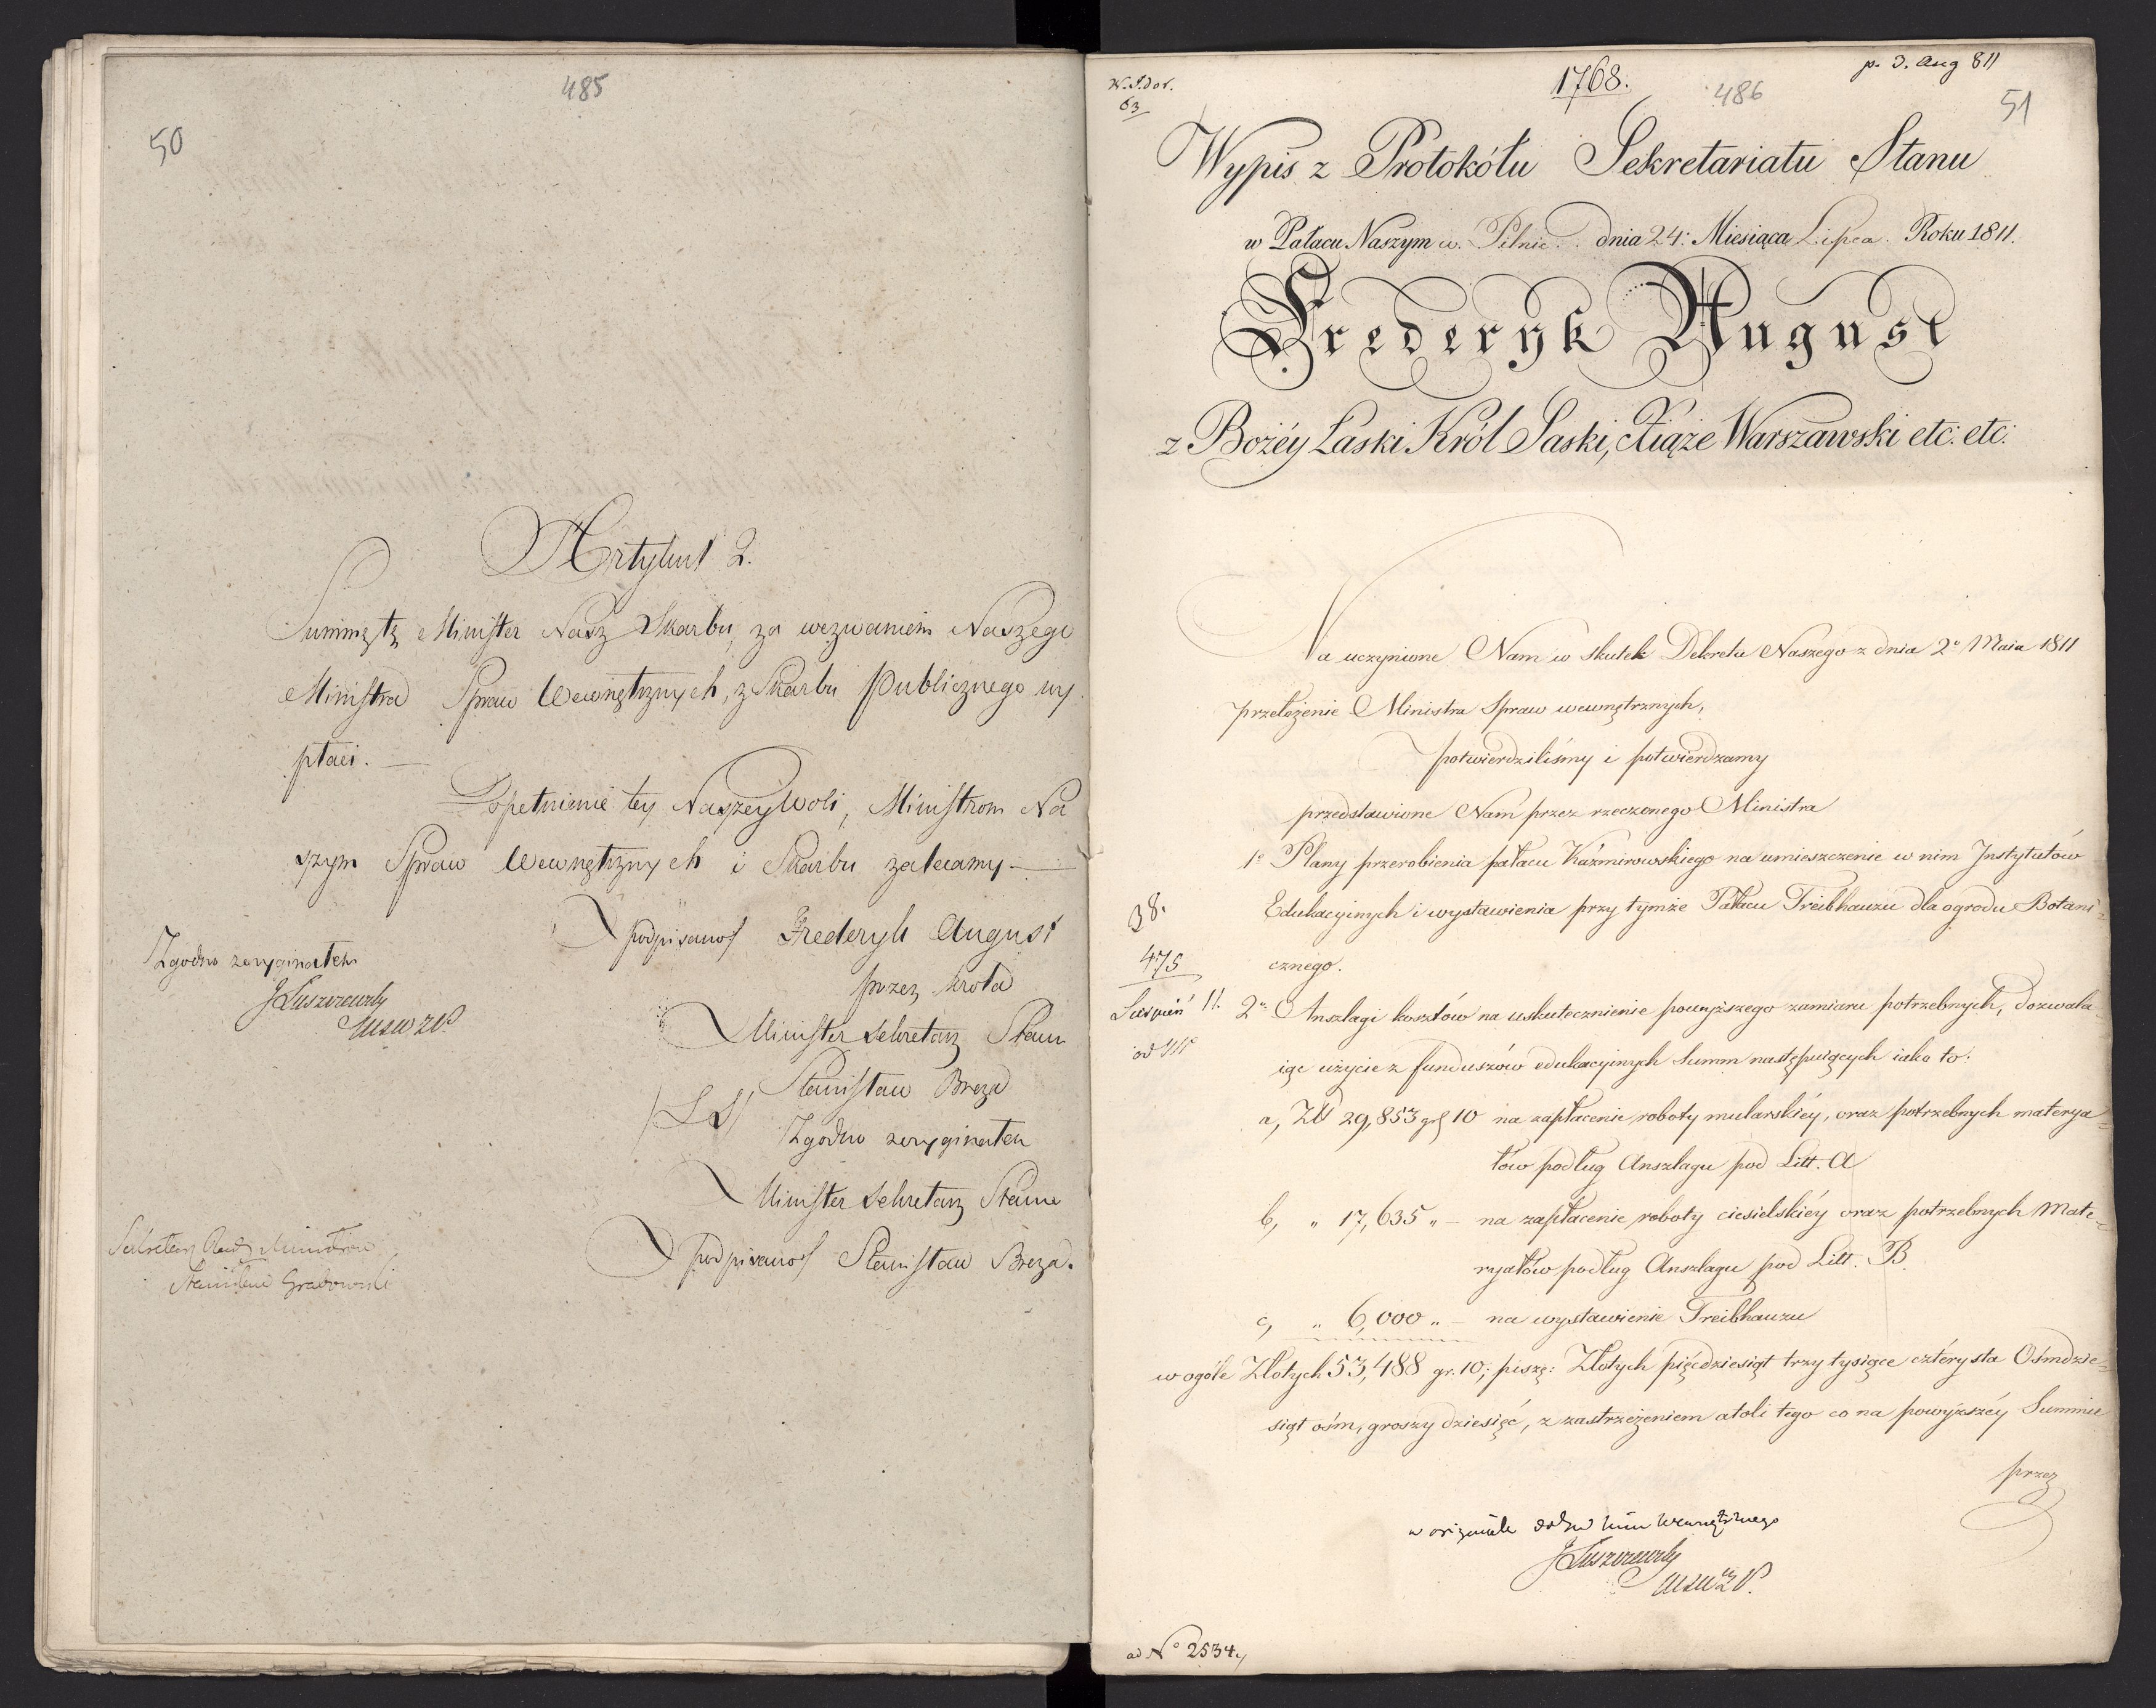 485
50
Artykuł 2.
Summę tę Minister Nasz Skarbu, za wezwaniem Naszego
Ministra Spraw Wewnętrznych, z Skarbu Publicznego wy
płaci. —
Dopełnienie tey Naszey Woli, Ministrom Na
szym Spraw Wewnętrznych i Skarbu zalecamy —
podpisano/ Frederyk August
Zgodno z oryginałem
przez Króla
J Łuszczewski
Minister Sekretarz Stanu
Stanisław Breza
/LS/
Zgodno z oryginałem
Minister Sekretarz Stanu
Sekretarz Rady Ministrów
podpisano/ Stanisław Breza.
Stanisław Grabowski
63
1768.
486
p. 3. Aug 811
51
Wypis z Protokółu Sekretariatu Stanu
w Pałacu Naszym w Pilnic dnia 24: Miesiąca Lipca Roku 1811.
Frederyk August
z Bożéy Łaski Król Saski, Xiąże Warszawski etc: etc:
Na uczynione Nam w skutek Dekretu Naszego z dnia 2° Maia 1811
przełożenie Ministra Spraw wewnętrznych,
potwierdziliśmy i potwierdzamy
przedstawione Nam przez rzeczonego Ministra
1° Plany przerobienia pałacu Kaźmirowskiego na umieszczenie w nim Instytutów
Edukacyinych i wystawienia przy tymże Pałacu Treibhauzu dla ogrodu Botani=
cznego.
38.
475
Sierpień 11.
2° Anszlagi kosztów na uskutecznienie powyższego zamiaru potrzebnych, dozwala=
iąc użycie z funduszów edukacyinych Summ następuiących iako to:
a, Zł 29,853 gr 10 na zapłacenie roboty mularskiéy, oraz potrzebnych materya=
łów podług Anszlagu pod Litt. A
b, " 17,635 " — na zapłacenie roboty ciesielskiéy oraz potrzebnych Mate=
ryałów podług Anszlagu pod Litt. B.
c, " 6,000 " — na wystawienie Treibhauzu
w ogóle Złotych 53,488 gr. 10; piszę: Złotych pięćdziesiąt trzy tysiące cztérysta Ośmdzie=
siąt ośm, groszy dziesięć, z zastrzeżeniem atoli tego co na powyższéy Summie
przez
J Łuszczewski
ad N° 2534